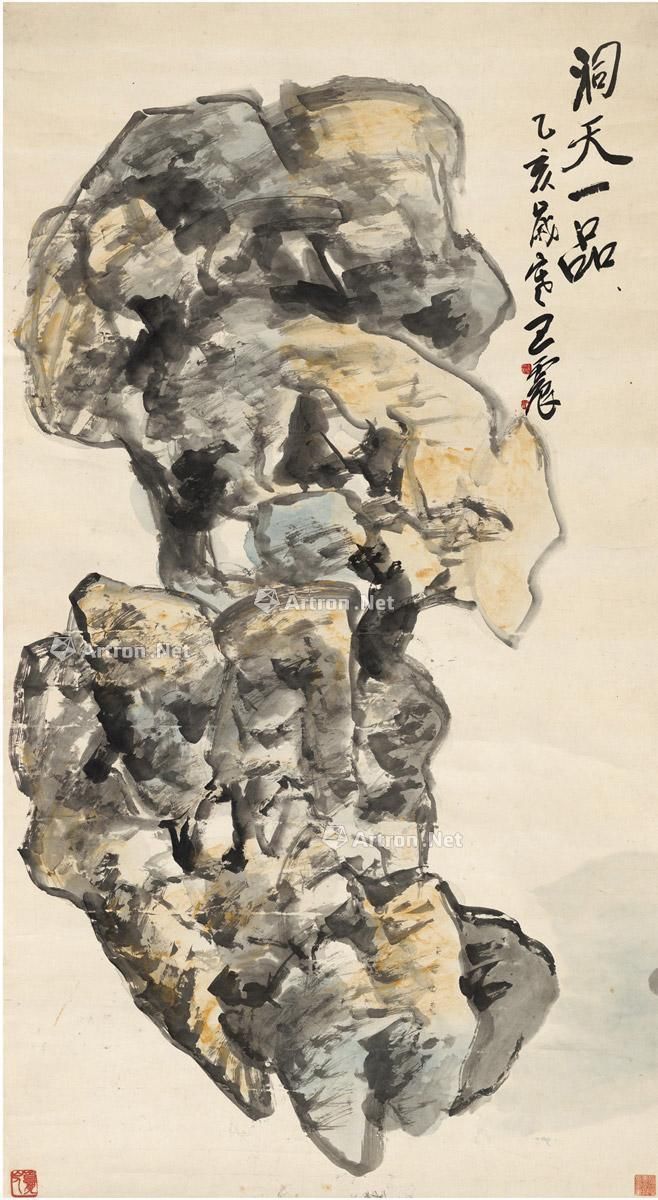 洞天一品
乙亥歲寒王震
Artron.Net
Artron.Net
Artron.Net